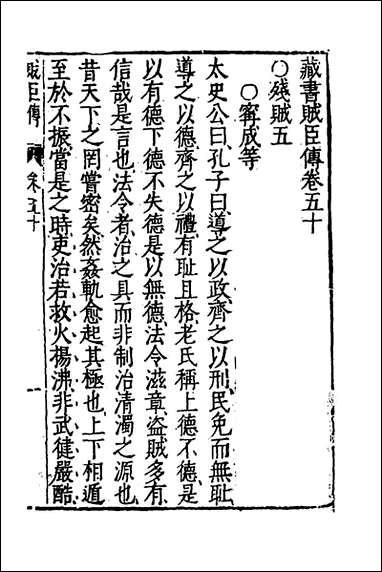 藏書賊臣傳卷五十
〇殘賊五
〇甯成等
太史公曰孔子曰導之以政齊之以刑民免而無耻
導之以德齊之以禮有耻且格老氏稱上德不德是
以有德下德不失德是以無德法令滋章盗賊多有
信哉是言也法令者治之具而非制治清濁之源也
昔天下之罔嘗密矣然姦軌愈起其極也上下相遁
至於不振當是之時吏治若救火揚沸非武健嚴酷
賊臣傳 卷五十 一